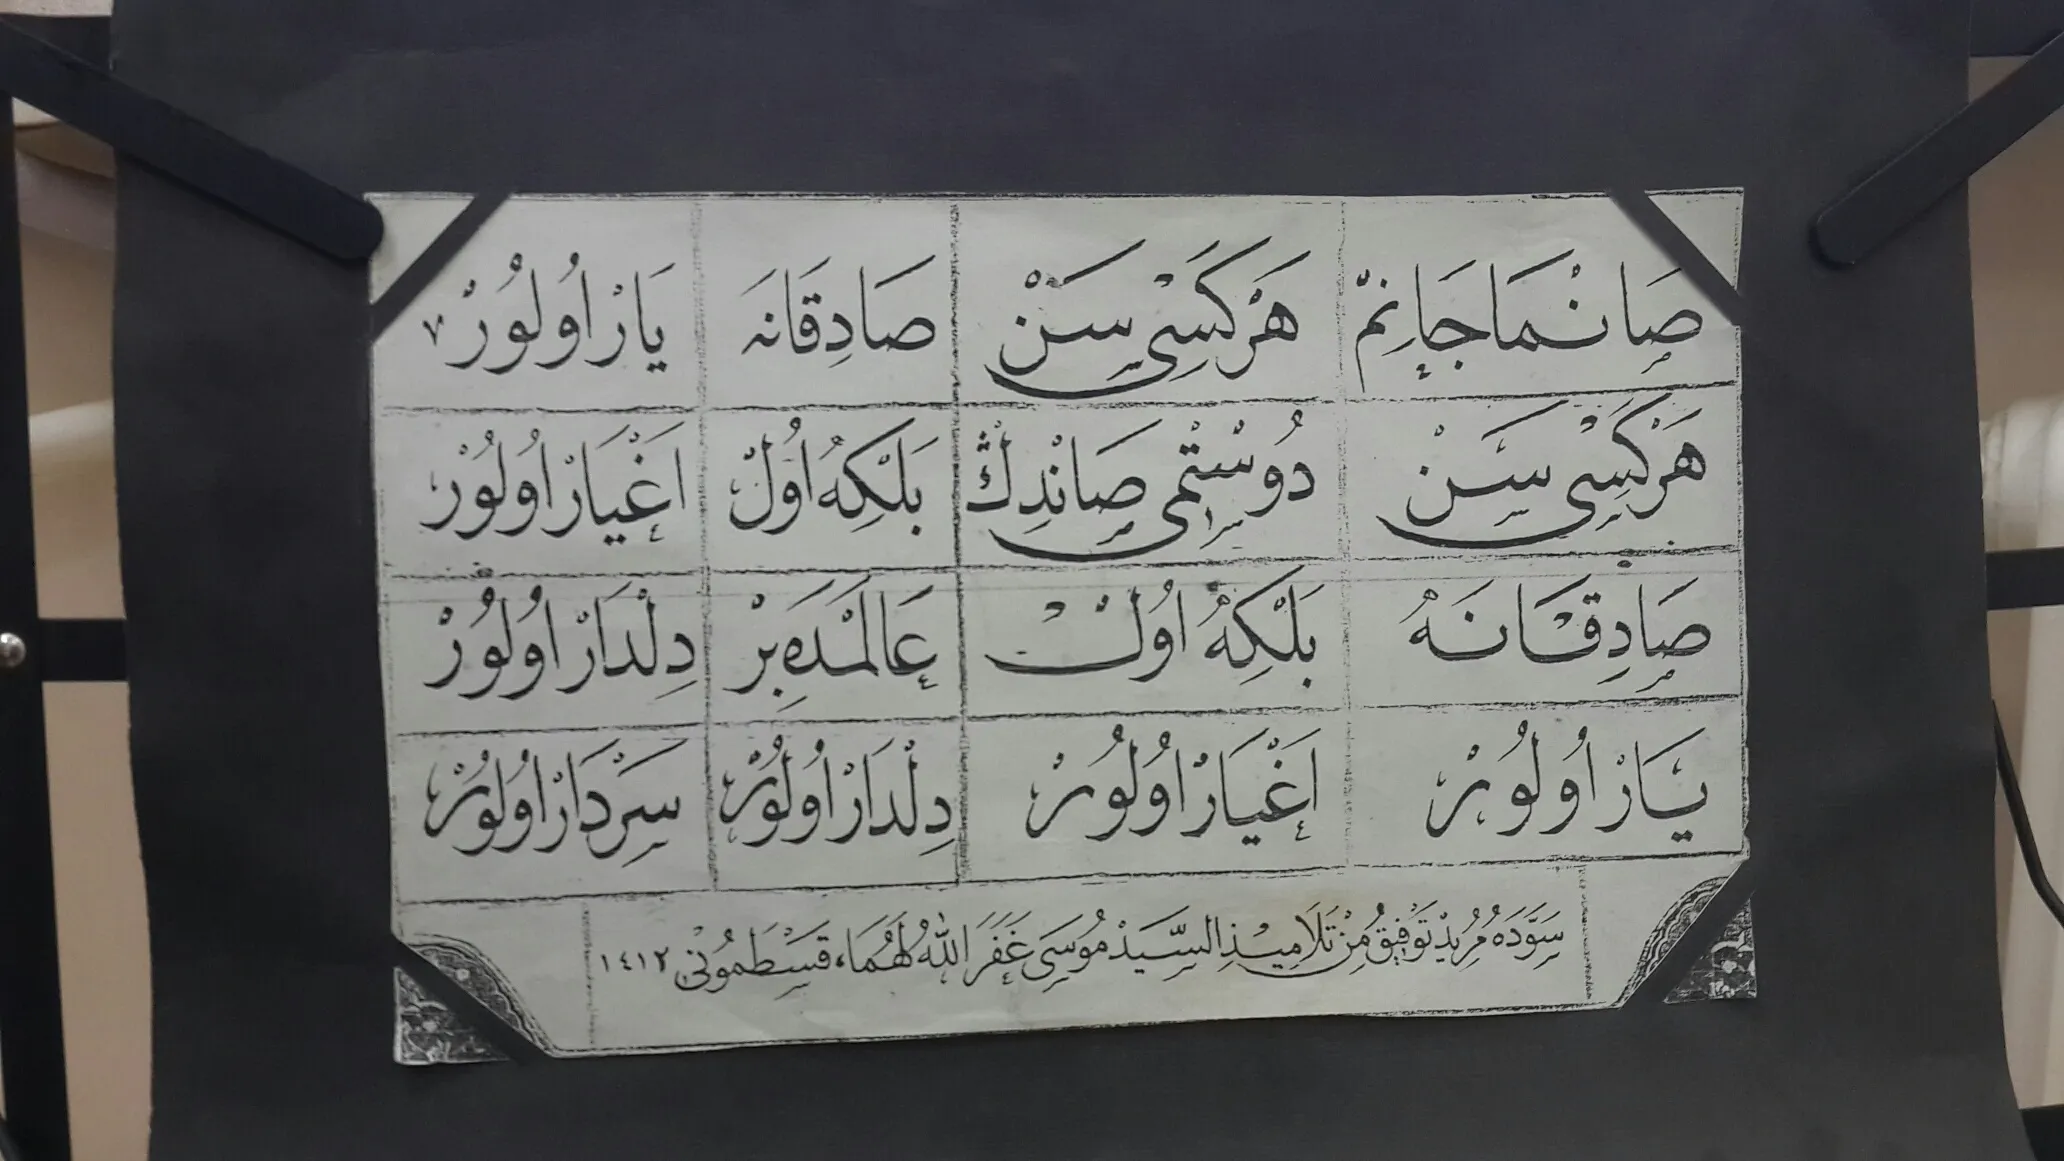 صَانْمَا جَانِمْ هَرْكَسِى سَنْ صَادِقَانَه يَارْ اُولُورْ ٧
هَرْكَسِى سَنْ دُوسْتْمِى صَانْدِڭْ بَلْكِه اُولْ اَغْيَارْ اُولُورْ
صَادِقَانَه بَلْكِه اُولْ عَالَمْدَه بِرْ دِلْدَارْ اُولُورْ
يَارْ اُولُورْ اَغْيَارْ اُولُورْ دِلْدَارْ اُولُورْ سَرْدَارْ اُولُورْ
سَوَّدَهُ مُرِيدْ تَوْفِيقْ مِنْ تَلَامِيذِ السَّيِّدْ مُوسَى غَفَرَ اللّٰهُ لَهُمَا، قَسْطَمُونِى ١٤١٢